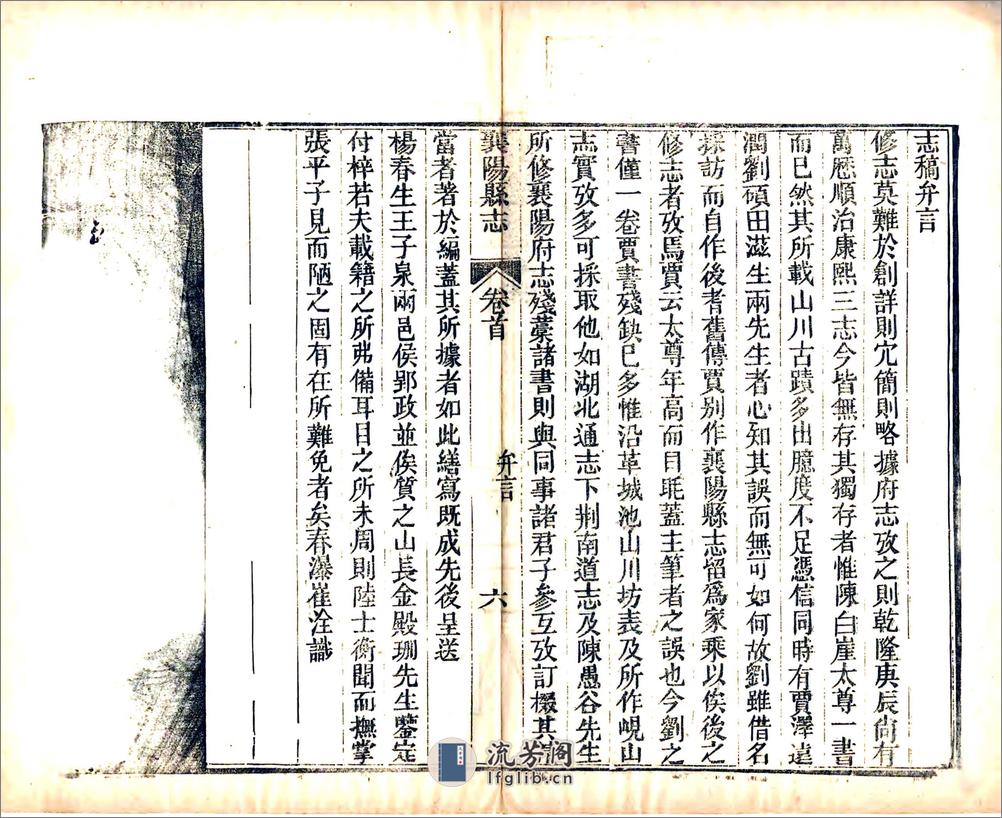 志稿弁言
修志莫難於創詳則宂簡則略據府志攷之則乾隆庚辰尙有
萬歷順治康熙三志今皆無存其獨存者惟陳白崖太尊一書
而已然其所載山川古蹟多出臆度不足憑信同時有賈澤遠
潤劉碩田滋生兩先生者心知其誤而無可如何故劉雖借名
採訪而自作後耆舊傳賈别作襄陽縣志畱爲家乘以俟後之
修志者攷焉賈云太尊年高而目眊蓋主筆者之誤也今劉之
書僅一卷賈書殘缺已多惟沿革城池山川坊表及所作峴山
志實攷多可採取他如湖北通志下荆南道志及陳愚谷先生
所修襄陽府志殘藁諸書則與同事諸君子參互攷訂樶其
襄陽縣志
卷首
弁言
六
當者著於編蓋其所據者如此繕寫既成先後呈送
楊春生王子泉兩邑侯郢政並俟質之山長金殿珊先生鑒定
付梓若夫載籍之所弗備耳目之所未周則陸士衡聞而撫掌
張平子見而陋之固有在所難免者矣春瀑崔淦識
流芳閣
lfglib.cn